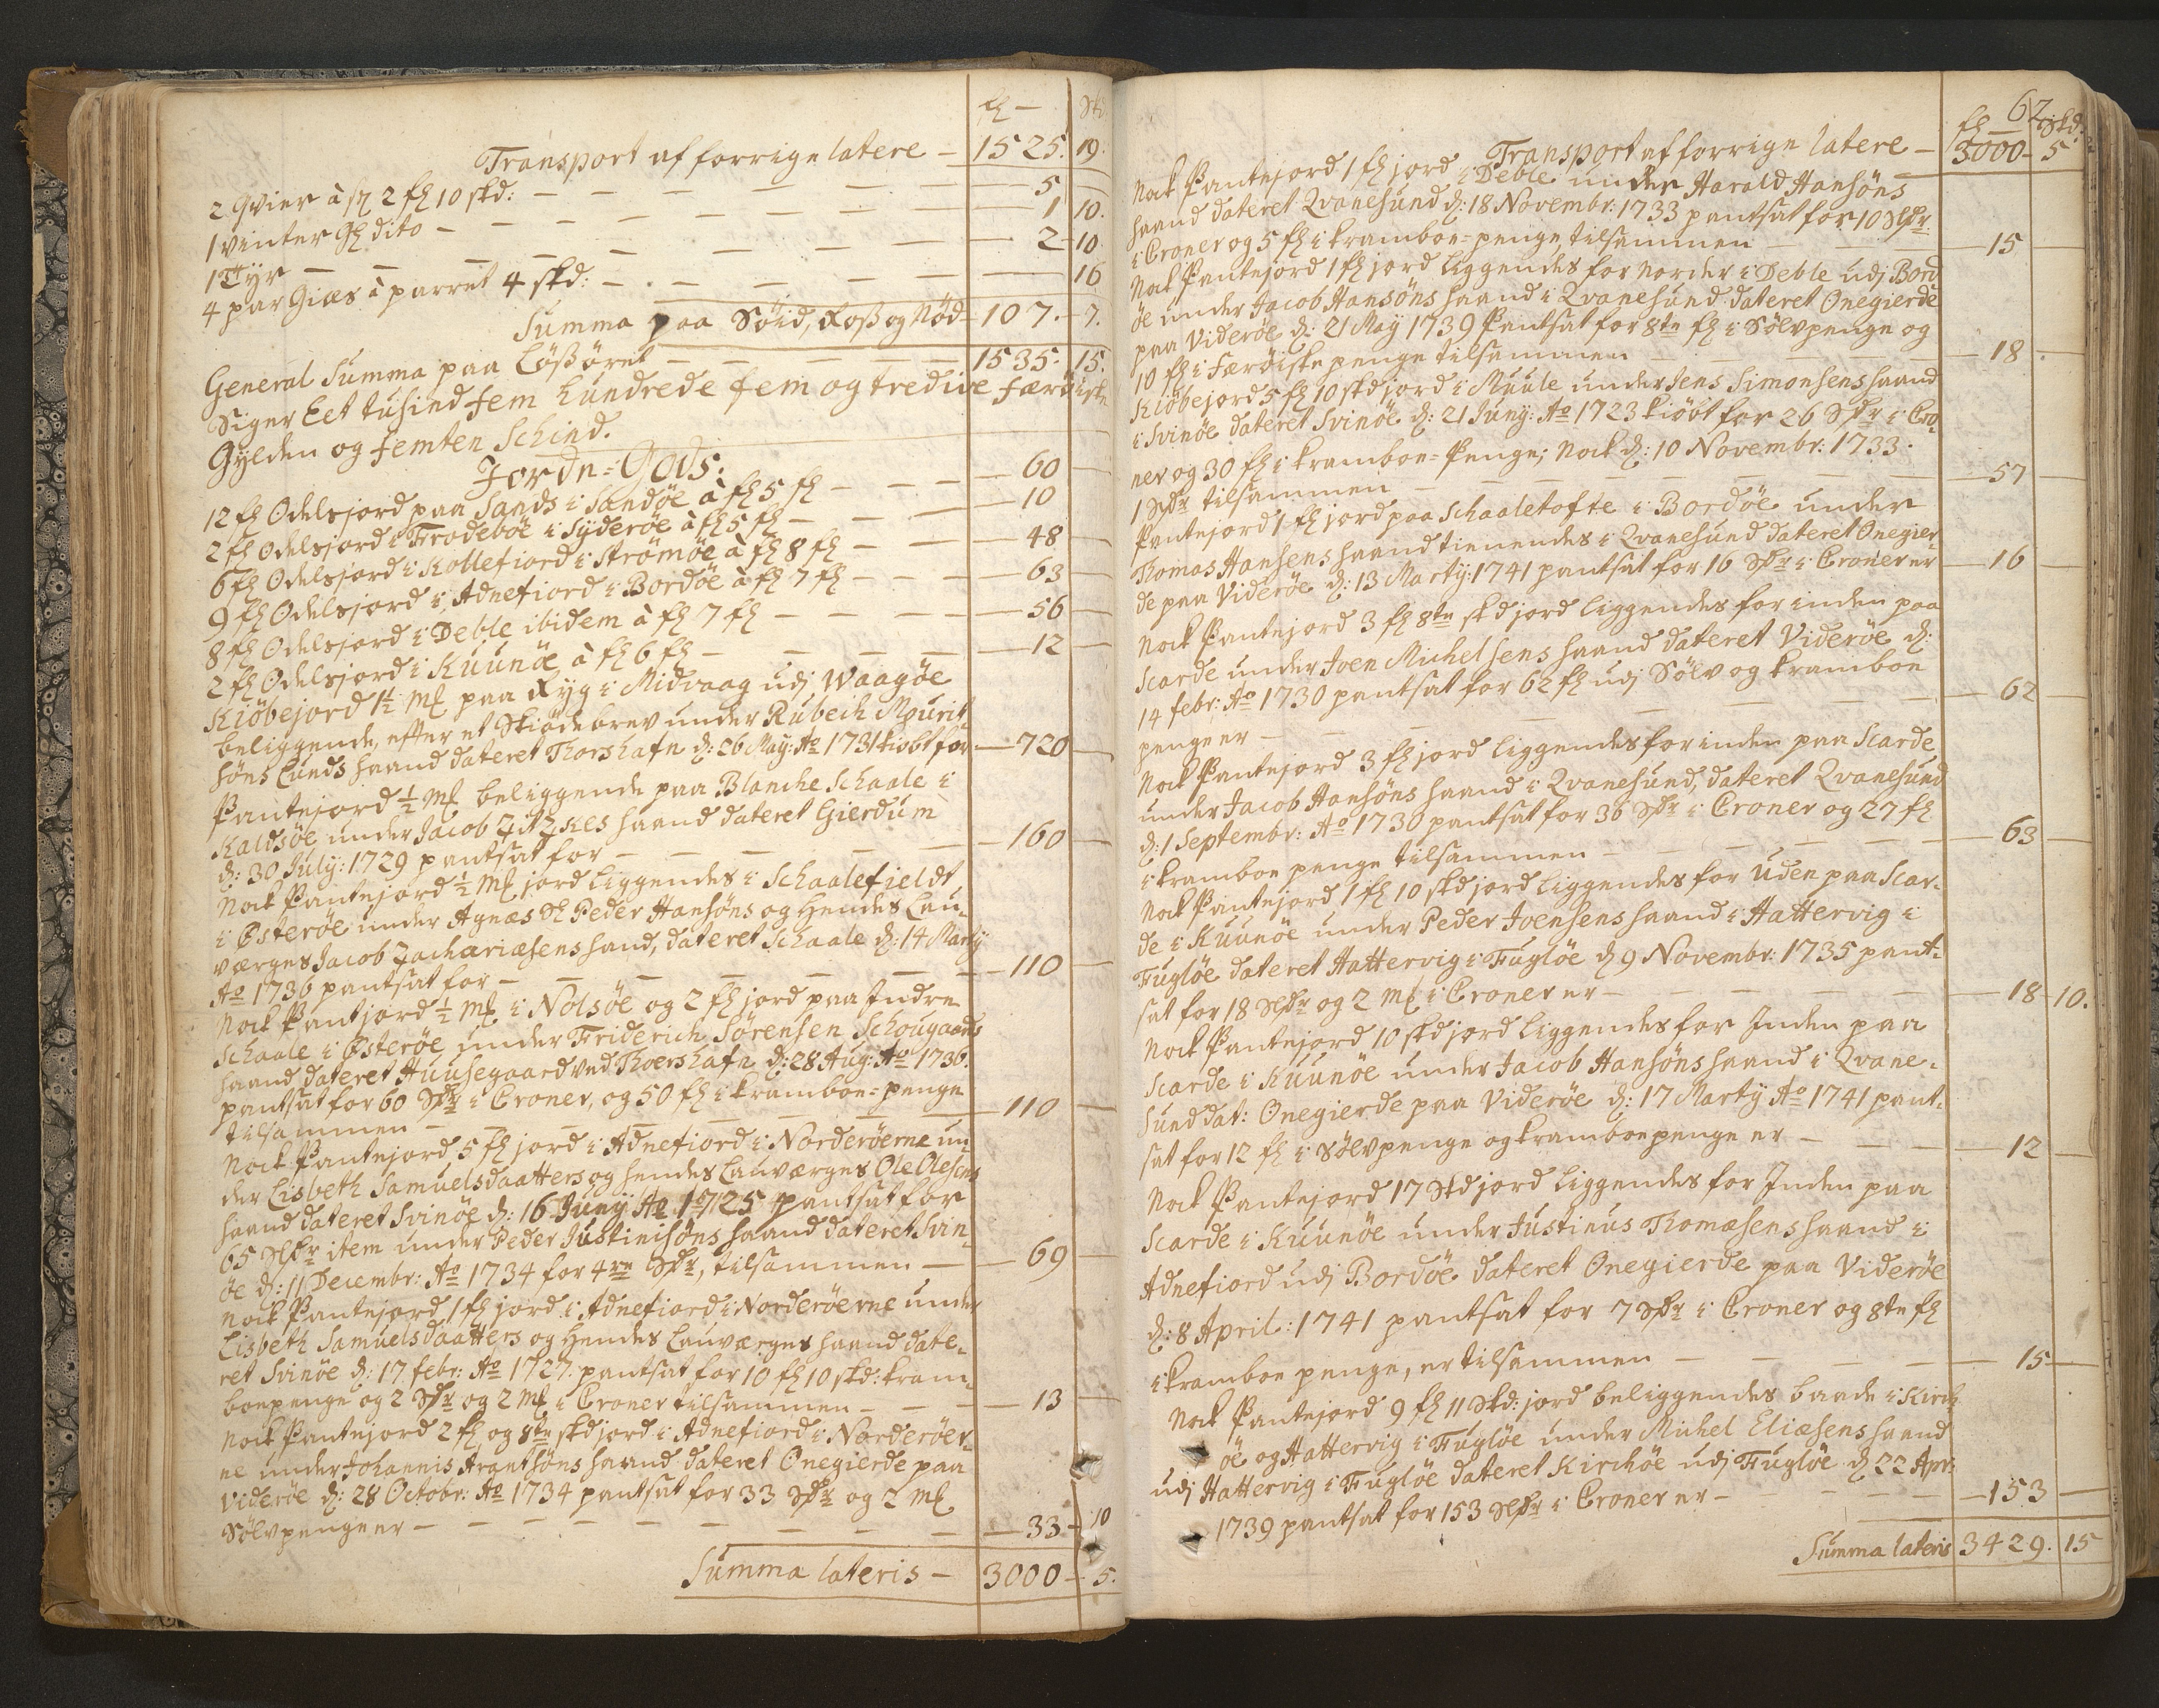 fl — Skd:
Transport af forrige latere — 1525. 19.
2 Qvier à st 2 fl 10 skd: — 5
1 vinter gl dito — 1 10.
1 Tÿr — 2 10
4 par Giæs à parret 4 skd: — 16
Summa paa Söid, Ross og Nöd — 107. 7.
General Summa paa Lössöret — 1535. 15.
Siger Eet tusind fem hundrede fem og tredive Færöiske
Gylden og femten Schind.
Jorde=Gods:
12 fl Odelsjord paa Sands i Sandöe à fl 5 fl — 60
2 fl Odelsjord i Frodeböe i Syderöe à fl 5 fl — 10
6 fl Odelsjord i Kollefiord i Strömöe à fl 8 fl — 48
9 fl Odelsjord i Adnefiord i Bordöe à fl 7 fl — 63
8 fl Odelsjord i Deble ibidem à fl 7 fl — 56
2 fl Odelsjord i Kuunöe à fl 6 fl — 12
Kiöbejord 1½ Mk paa Ryg i Midvaag udj Waagöe
beliggende, efter et Skiöde brev under Rubech Mourit-
söns Lunds haand dateret Thorshafn d: 26 Maÿ: Ao 1731 kiöbt for — 720
Pantejord ½ Mk beliggende paa Blanche Schaale i
Kaldsöe under Jacob Zitzkes haand dateret Gierdum
d: 30 July: 1729 pantsat for — 160
Nock Pantejord ½ Mk jord liggendes i Schaalefieldt
i Österöe under Agnæs Sl Peder Hansöns og hendes Lau-
værges Jacob Zachariæsens hand, dateret Schaale d: 14 Martÿ
Ao 1736 pantsat for — 110
Nock Pantjord ½ Mk i Nolsöe og 2 fl jord paa Indre
Schaale i Österöe under Friderich Sörensen Schougaards
haand dateret Huusegaard ved Thoershafn d: 28 Aug: Ao 1736.
pantsat for 60 Sldr i Croner, og 50 fl i kramboe=penge
tilsammen — 110
Nock Pantejord 5 fl jord i Adnefiord i Norderöerne un
der Lisbeth Samuelsdaatters og hendes Lauværges Ole Olesens
haand dateret Svinöe d: 16 Junÿ Ao 1725 pantsat for
65 Sldr item under Peder Justinisöns haand dateret Svin-
öe d: 11 Decembr: Ao 1734 for 4re Sldr, tilsammen — 69
Nock Pantejord 1 fl jord i Adnefiord i Norderöerne under
Lisbeth Samuelsdaatters og hendes Lauværges haand date-
ret Svinöe d: 17 febr: Ao 1727. pantsat for 10 fl 10 skd: kram-
boepenge og 2 Sldr og 2 Mk i Croner tilsammen — 13
Nock Pantejord 2 fl og 8te skd jord i Adnefiord i Norderöer-
ne under Johannis Arantsöns haand dateret Onegierde paa
Viderøe d: 28 Octobr: Ao 1734 pantsat for 33 Sldr og 2 Mk
Sölvpenge er — 33 10
Summa lateris — 3000 5.
62.
fl — Skd:
Transport af forrige latere — 3000 — 5
Nock Pantejord 1 fl jord i Deble under Harald Hansöns
haand dateret Qvanesund d: 18 Novembr: 1733 pantsat for 10 Sldr
i Croner og 5 fl i kramboe=penge, tilsammen — 15
Nock Pantejord 1 fl jord liggendes for norden i Deble udj Bord
öe under Jacob Hansöns haand i Qvanesund dateret Onegierde
paa Viderøe d: 21 Maÿ 1739 Pantsat for 8te fl i Sölvpenge og
10 fl i Færöiske penge tilsammen — 18.
Kiöbejord 5 fl 10 skd jord i Muule under Jens Simonsens haand
i Svinöe dateret Svinöe d: 21 Junÿ: Ao 1723 kiöbt for 26 Sldr i Cro-
ner og 30 fl i kramboe=Penge; Nock d: 10 Novembr: 1733.
1 Sldr tilsammen — 57
Pantejord 1 fl jord paa Schaaletofte i Bordöe under
Thomas Hansens haand tienendes i Qvanesund dateret Onegier-
de paa Viderøe d: 13 Martÿ: 1741 pantsat for 16 Sldr i Croner er — 16
Nock Pantejord 3 fl 8te skd jord liggendes for inden paa
Scarde under Joen Michelsens haand dateret Viderøe d:
14 febr: Ao 1730 pantsat for 62 fl udj Sölv og kramboe
penge er — 62
Nock Pantejord 3 fl jord liggendes for inden paa Scarde
under Jacob Hansöns haand i Qvanesund, dateret Qvanesund
d: 1 Septembr: Ao 1730 pantsat for 36 Sldr i Croner og 27 fl
i kramboe penge tilsammen — 63
Nock Pantejord 1 fl 10 skd jord liggendes for uden paa Scar-
de i Kuunöe under Peder Joensens haand i Hattervig i
Fuglöe dateret Hattervig i Fuglöe d 9 Novembr: 1735 pant-
sat for 18 Sldr og 2 Mk i Croner er — 18 10.
Nock Pantejord 10 skd jord liggendes for Inden paa
Scarde i Kuunöe under Jacob Hansöns haand i Qvane-
sund dat: Onegierde paa Viderøe d: 17 Martÿ Ao 1741 pant-
sat for 12 fl i Sölvpenge og kramboepenge er — 12
Nock Pantejord 17 Skd jord liggendes for Inden paa
Scarde i Kuunöe under Justinus Thomæsens haand i
Adnefiord udj Bordöe dateret Onegierde paa Viderøe
d: 8 April: 1741 pantsat for 7 Sldr i Croner og 8te fl
i kramboe penge, er tilsammen — 15
Nock Pantejord 9 fl 11 Skd: jord beliggendes baade i Kirck
öe og Hattervig i Fuglöe under Michel Eliæsens haand
udj Hattervig i Fuglöe dateret Kirchöe udj Fuglöe d 22 Apr:
1739 pantsat for 153 Sldr i Croner er — 153
Summa lateris 3429. 15